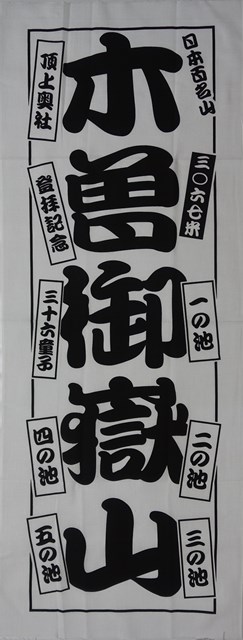 日本百名山
三〇六七米
一の池
二の池
三の池
木曽御嶽山
頂上奥社
登拝記念
三十六童子
四の池
五の池